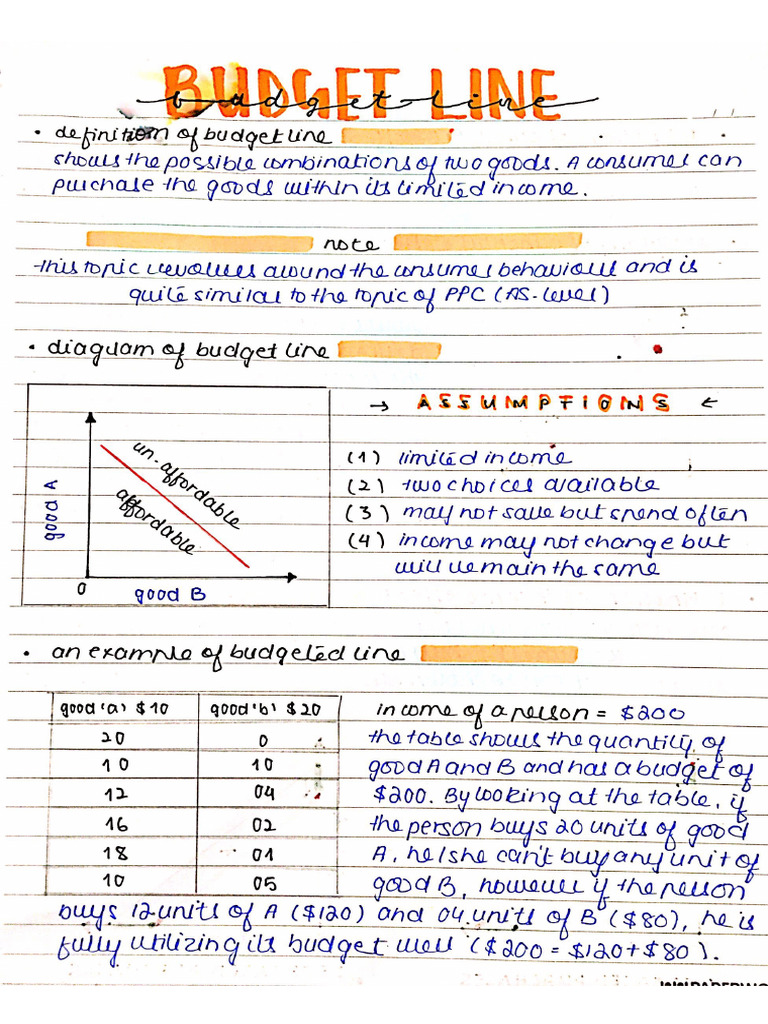 BUDGET LINE
budget line
• definition of budget line
shows the possible combinations of two goods. A consumer can
purchase the goods within its limited income.
note
this topic revolves around the consumer behaviour and is
quite similar to the topic of PPC (AS-level)
• diagram of budget line
→ ASSUMPTIONS ←
good A
un-affordable
affordable
0
good B
(1) limited income
(2) two choices available
(3) may not save but spend often
(4) income may not change but
will remain the same
• an example of budgeted line
good 'a) $10 good 'b) $20
20 0
10 10
12 04
16 02
18 01
10 05
income of a person = $200
the table shows the quantity of
good A and B and has a budget of
$200. By looking at the table, if
the person buys 20 units of good
A, he/she can't buy any unit of
good B, however if the person
buys 12 units of A ($120) and 04 units of B ($80), he is
fully utilizing its budget well ($200 = $120 + $80).